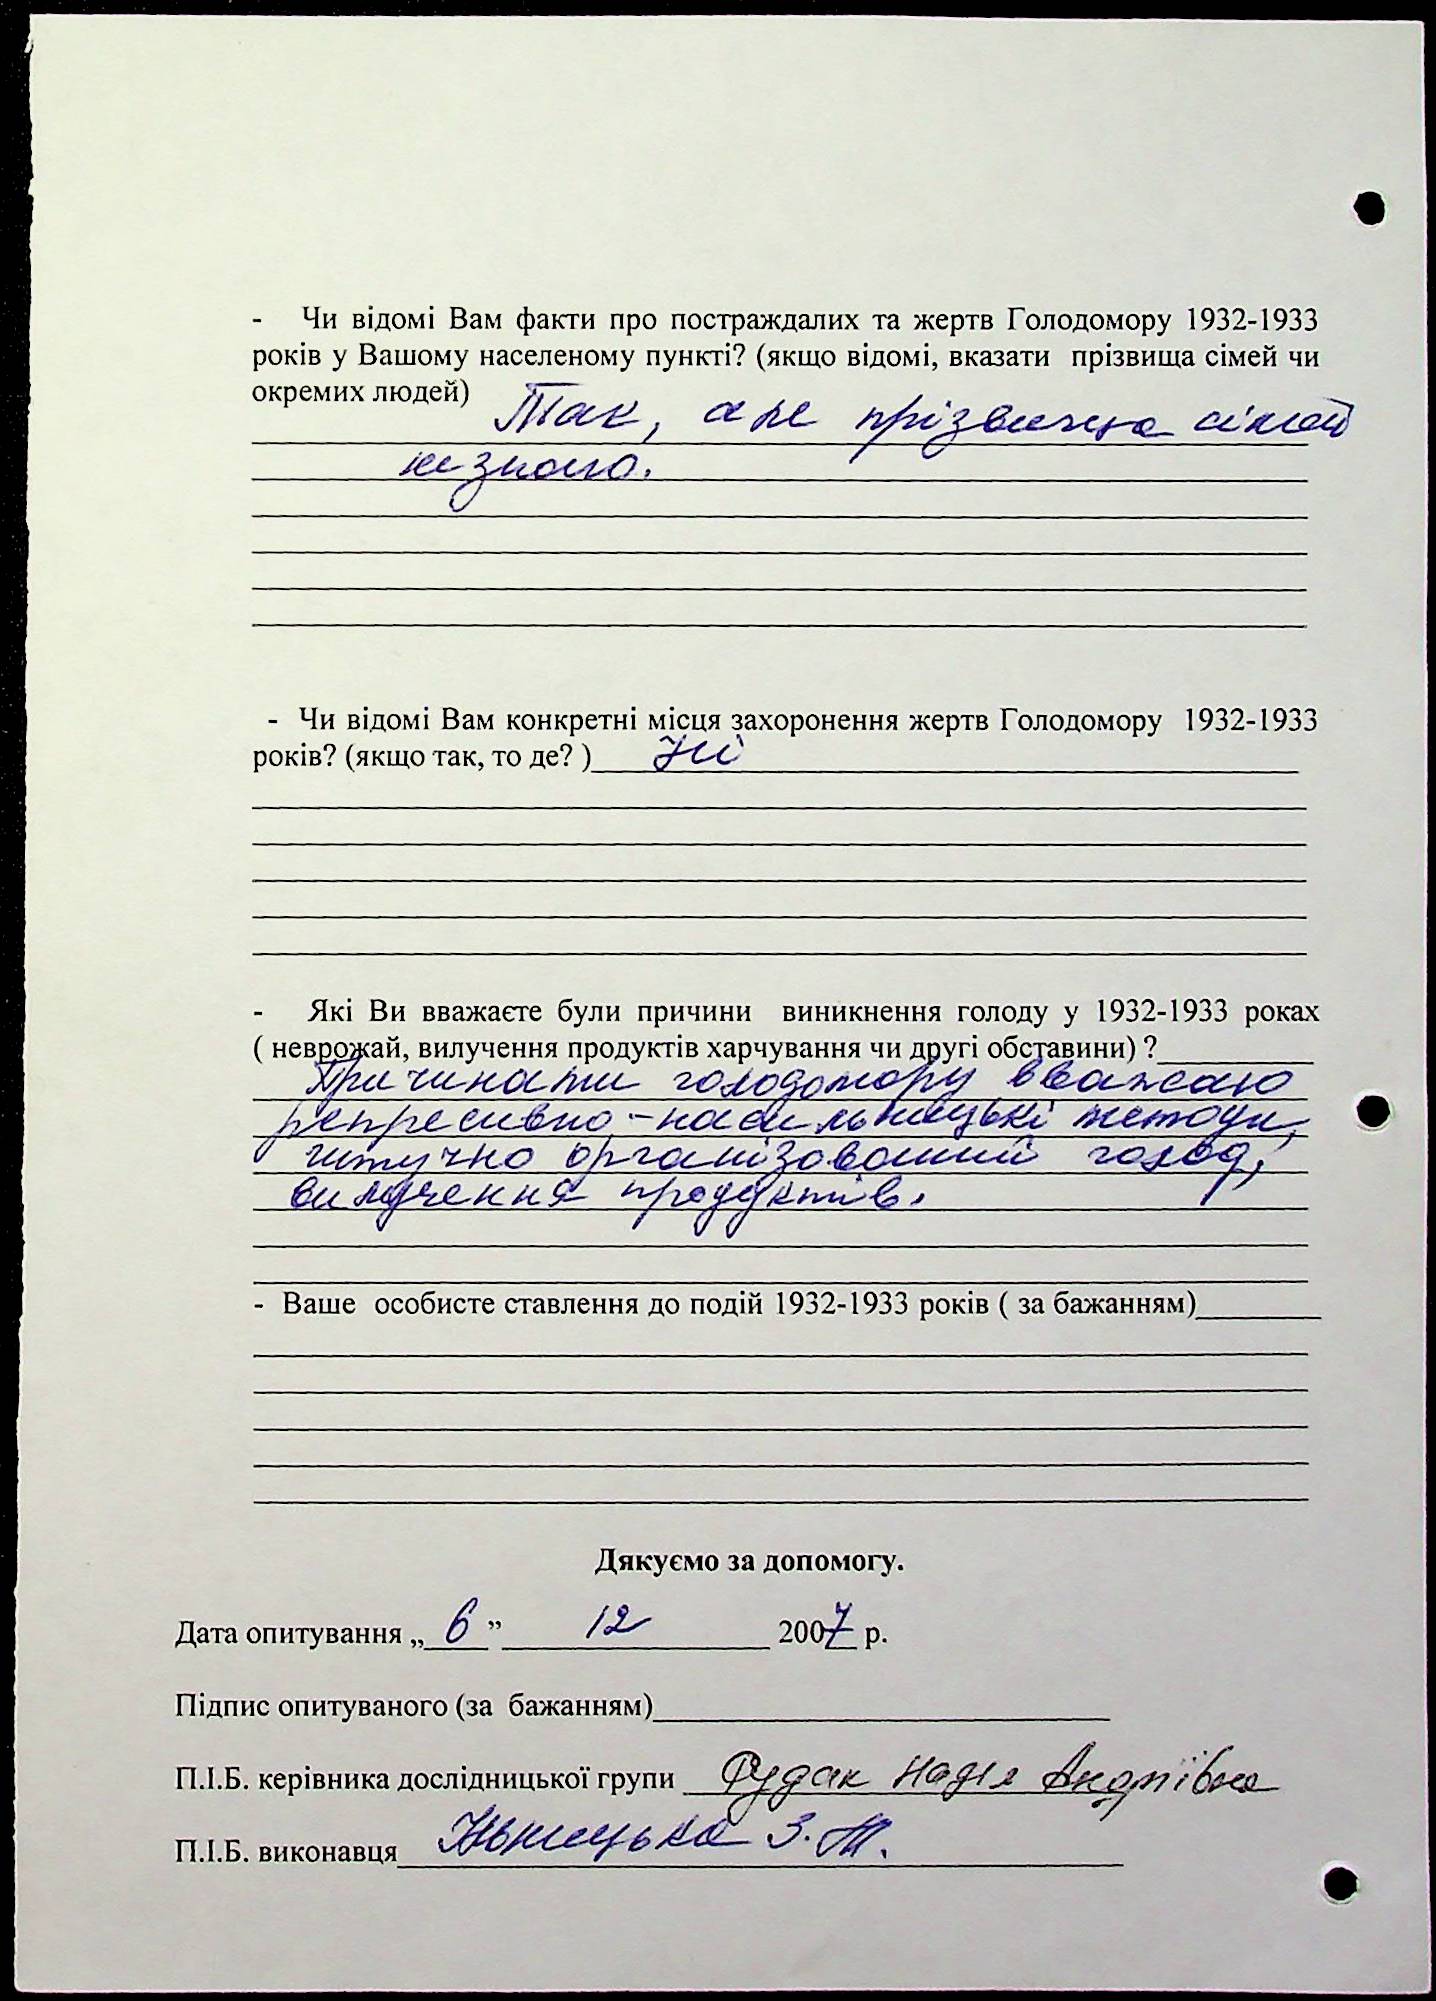 - Чи відомі Вам факти про постраждалих та жертв Голодомору 1932-1933
років у Вашому населеному пункті? (якщо відомі, вказати прізвища сімей чи
окремих людей) Так, але прізвища сімей
не знаю.
- Чи відомі Вам конкретні місця захоронення жертв Голодомору 1932-1933
років? (якщо так, то де? ) Ні
- Які Ви вважаєте були причини виникнення голоду у 1932-1933 роках
( неврожай, вилучення продуктів харчування чи другі обставини) ?
Причинами голодомору вважаю
репресивно-насильницькі методи,
штучно організований голод,
вилучення продуктів.
- Ваше особисте ставлення до подій 1932-1933 років ( за бажанням)
Дякуємо за допомогу.
Дата опитування „ 6 ” 12 2007 р.
Підпис опитуваного (за бажанням)
П.І.Б. керівника дослідницької групи Рудак Надія Андріївна
П.І.Б. виконавця З.